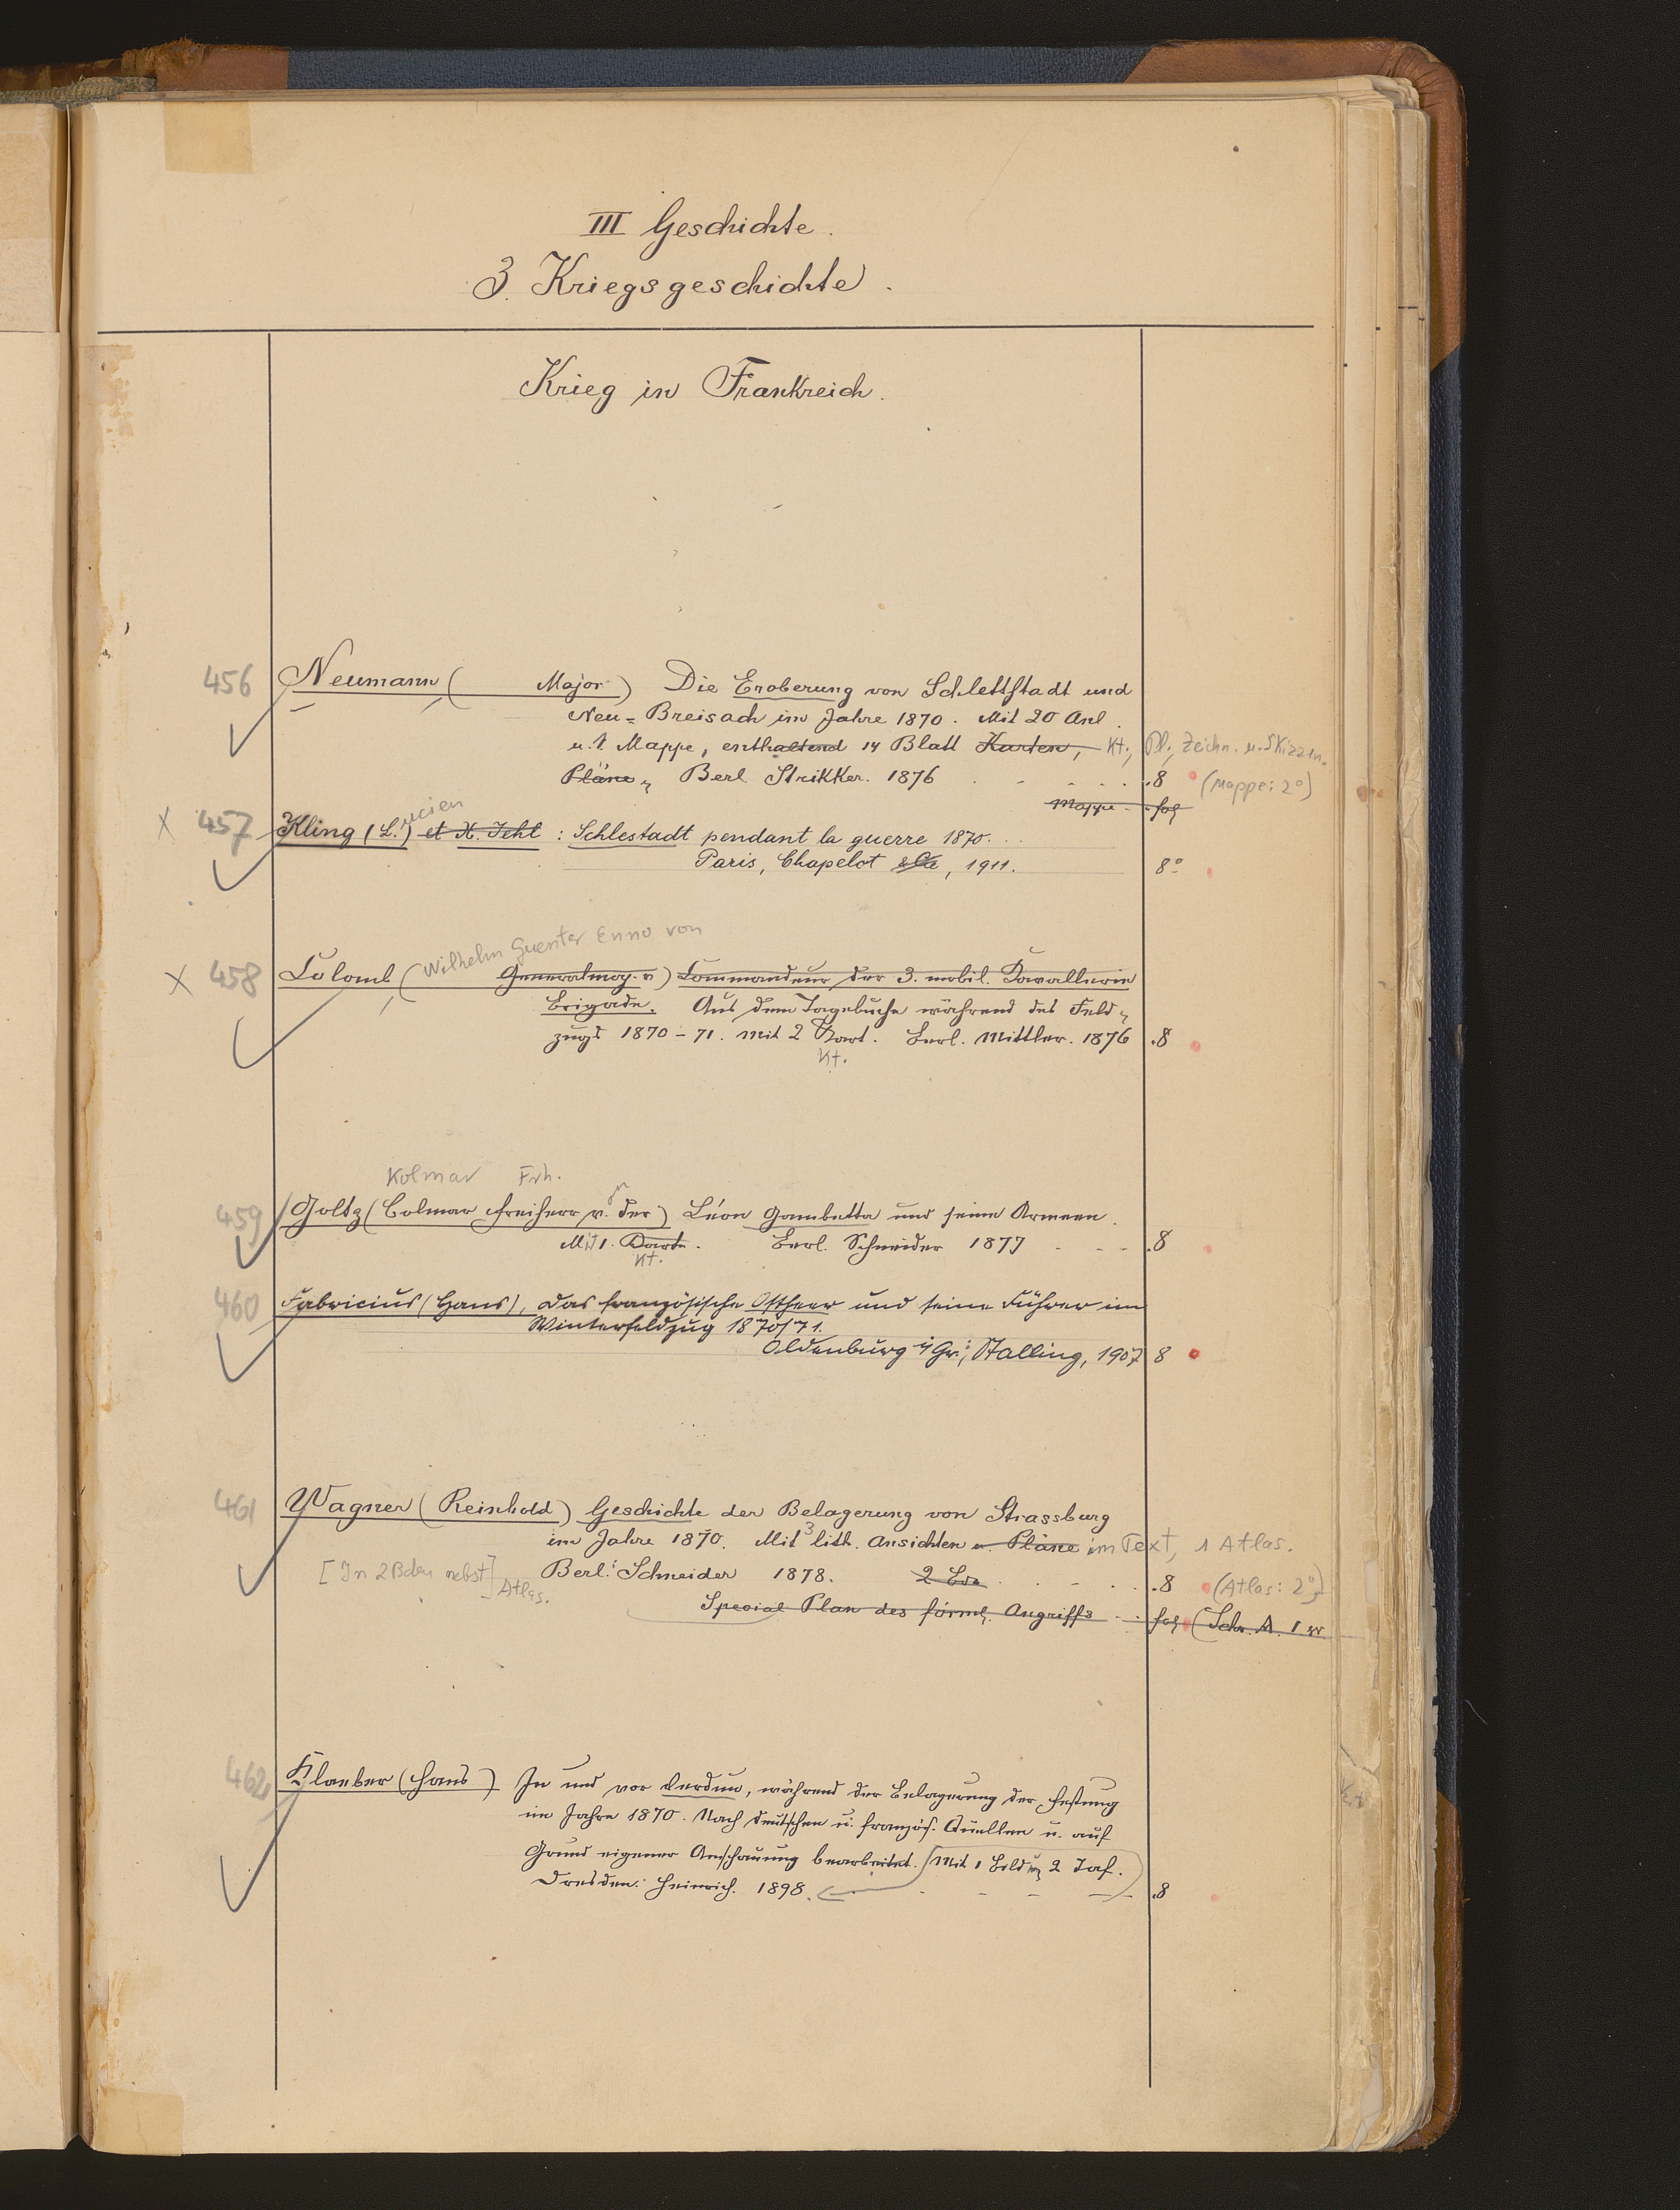 III Geschichte.
3. Kriegsgeschichte.
Krieg in Frankreich.
456 Neumann ( Major) Die Eroberung von Schlettstadt und
Neu-Breisach im Jahre 1870. Mit 20 Anl.
u. 1 Mappe, enthaltend 14 Blatt Karten, Kt., Pl., Zeichn. u. Skizzen.
Pläne, Berl. Strikker. 1876 . - - . . .8 (Mappe: 2°)
Mappe - fol
X 457 Kling (L.ucien) et X. Jehl : Schlestadt pendant la guerre 1870.
Paris, Chapelot & Cie, 1911. 8°
Wilhelm Guenter Enno von
X 458 Colomb ( Generalmaj. v) Commandeur der 3. mobil. Kavallerie
Brigade. Aus dem Tagebuche während des Feld-
zugs 1870-71. Mit 2 Kart. Berl. Mittler. 1876 .8
Kt.
Kolmar Frh.
459 Goltz (Colmar Freiherr v. der) Léon Gambetta und seine Armeen.
Mit 1. Karte. Berl. Schneider 1877 - - - .8
Kt.
460 Fabricius (Hans), Das französische Ostheer und seine Führer im
Winterfeldzug 1870/71.
Oldenburg i/Gr.; Stalling, 1907 8
461 Wagner (Reinhold) Geschichte der Belagerung von Strassburg
im Jahre 1870. Mit 3 lith. Ansichten u. Pläne im Text, 1 Atlas.
[In 2 Bden nebst Atlas.] Berl: Schneider 1878. 2 Bde . . - . . .8 (Atlas: 2°)
Special Plan des förml. Angriffs - . fol (Schr. A. 1
462 Klaeber (Hans) In und vor Verdun, während der Belagerung der Festung
im Jahre 1870. Nach deutschen u. französ. Quellen u. auf
Grund eigener Anschauung bearbeitet. Mit 1 Bild u. 2 Taf.
Dresden: Heinrich. 1898. - - - - .8